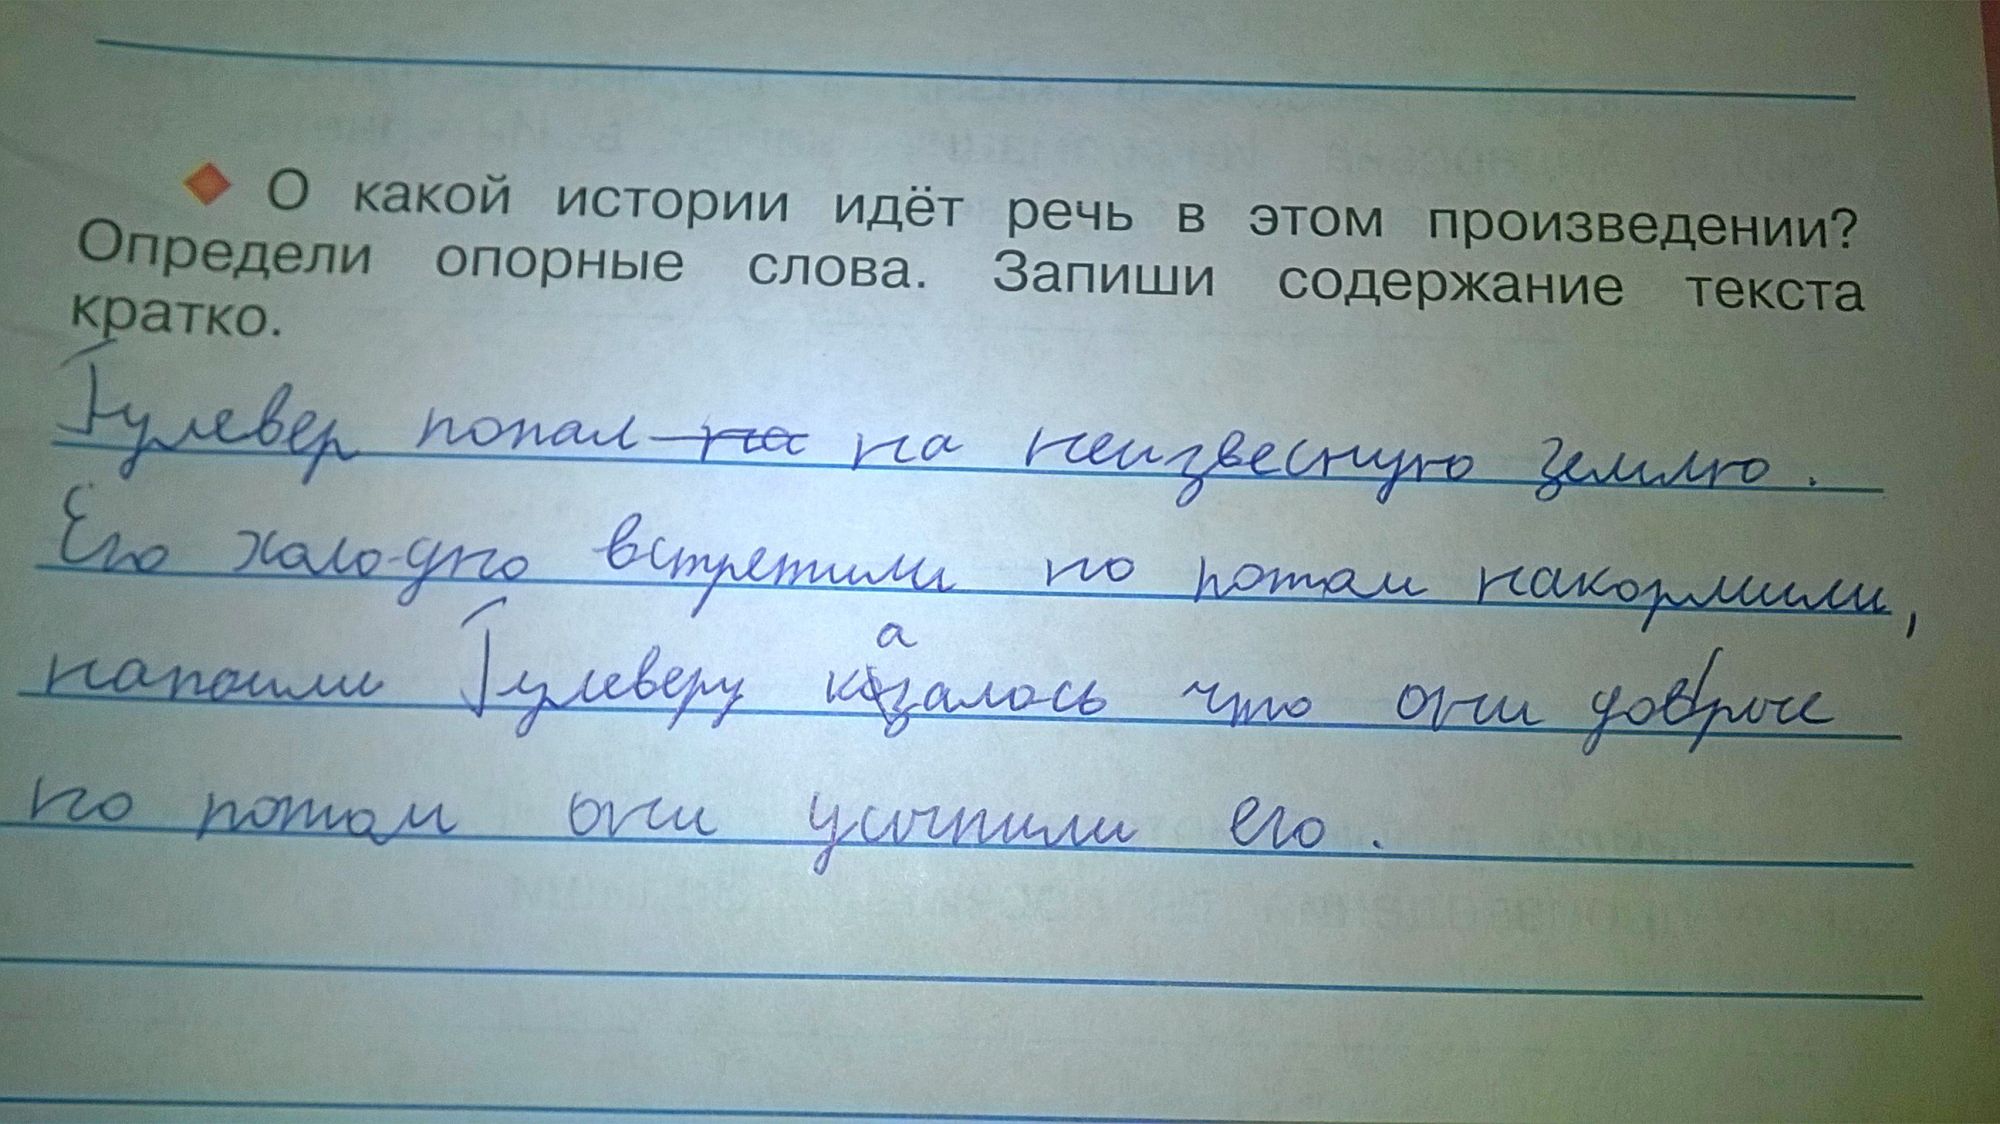 О какой истории идёт речь в этом произведении?
Определи опорные слова. Запиши содержание текста
кратко.
Гулевер попал на на неизвесную землю.
Его халодно встретили но потом накормили,
напоили Гулеверу казалось что они добрые
но потом они усыпили его.